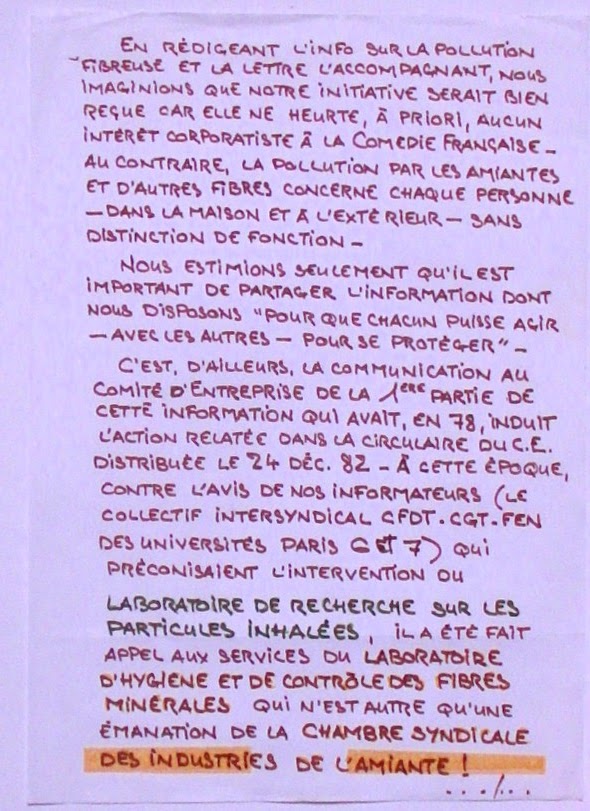 EN RÉDIGEANT L'INFO SUR LA POLLUTION
FIBREUSE ET LA LETTRE L'ACCOMPAGNANT, NOUS
IMAGINIONS QUE NOTRE INITIATIVE SERAIT BIEN
REÇUE CAR ELLE NE HEURTE, À PRIORI, AUCUN
INTÉRÊT CORPORATISTE À LA COMÉDIE FRANÇAISE -
AU CONTRAIRE, LA POLLUTION PAR LES AMIANTES
ET D'AUTRES FIBRES CONCERNE CHAQUE PERSONNE
- DANS LA MAISON ET À L'EXTÉRIEUR - SANS
DISTINCTION DE FONCTION -
NOUS ESTIMIONS SEULEMENT QU'IL EST
IMPORTANT DE PARTAGER L'INFORMATION DONT
NOUS DISPOSONS "POUR QUE CHACUN PUISSE AGIR
- AVEC LES AUTRES - POUR SE PROTÉGER" -
C'EST, D'AILLEURS, LA COMMUNICATION AU
COMITÉ D'ENTREPRISE DE LA 1ERE PARTIE DE
CETTE INFORMATION QUI AVAIT, EN 78, INDUIT
L'ACTION RELATÉE DANS LA CIRCULAIRE DU C.E.
DISTRIBUÉE LE 24 DÉC. 82 - À CETTE ÉPOQUE,
CONTRE L'AVIS DE NOS INFORMATEURS (LE
COLLECTIF INTERSYNDICAL CFDT-CGT-FEN
DES UNIVERSITÉS PARIS 6 ET 7) QUI
PRÉCONISAIENT L'INTERVENTION DU
LABORATOIRE DE RECHERCHE SUR LES
PARTICULES INHALÉES, IL A ÉTÉ FAIT
APPEL AUX SERVICES DU LABORATOIRE
D'HYGIÈNE ET DE CONTRÔLE DES FIBRES
MINÉRALES QUI N'EST AUTRE QU'UNE
ÉMANATION DE LA CHAMBRE SYNDICALE
DES INDUSTRIES DE L'AMIANTE !
.../...